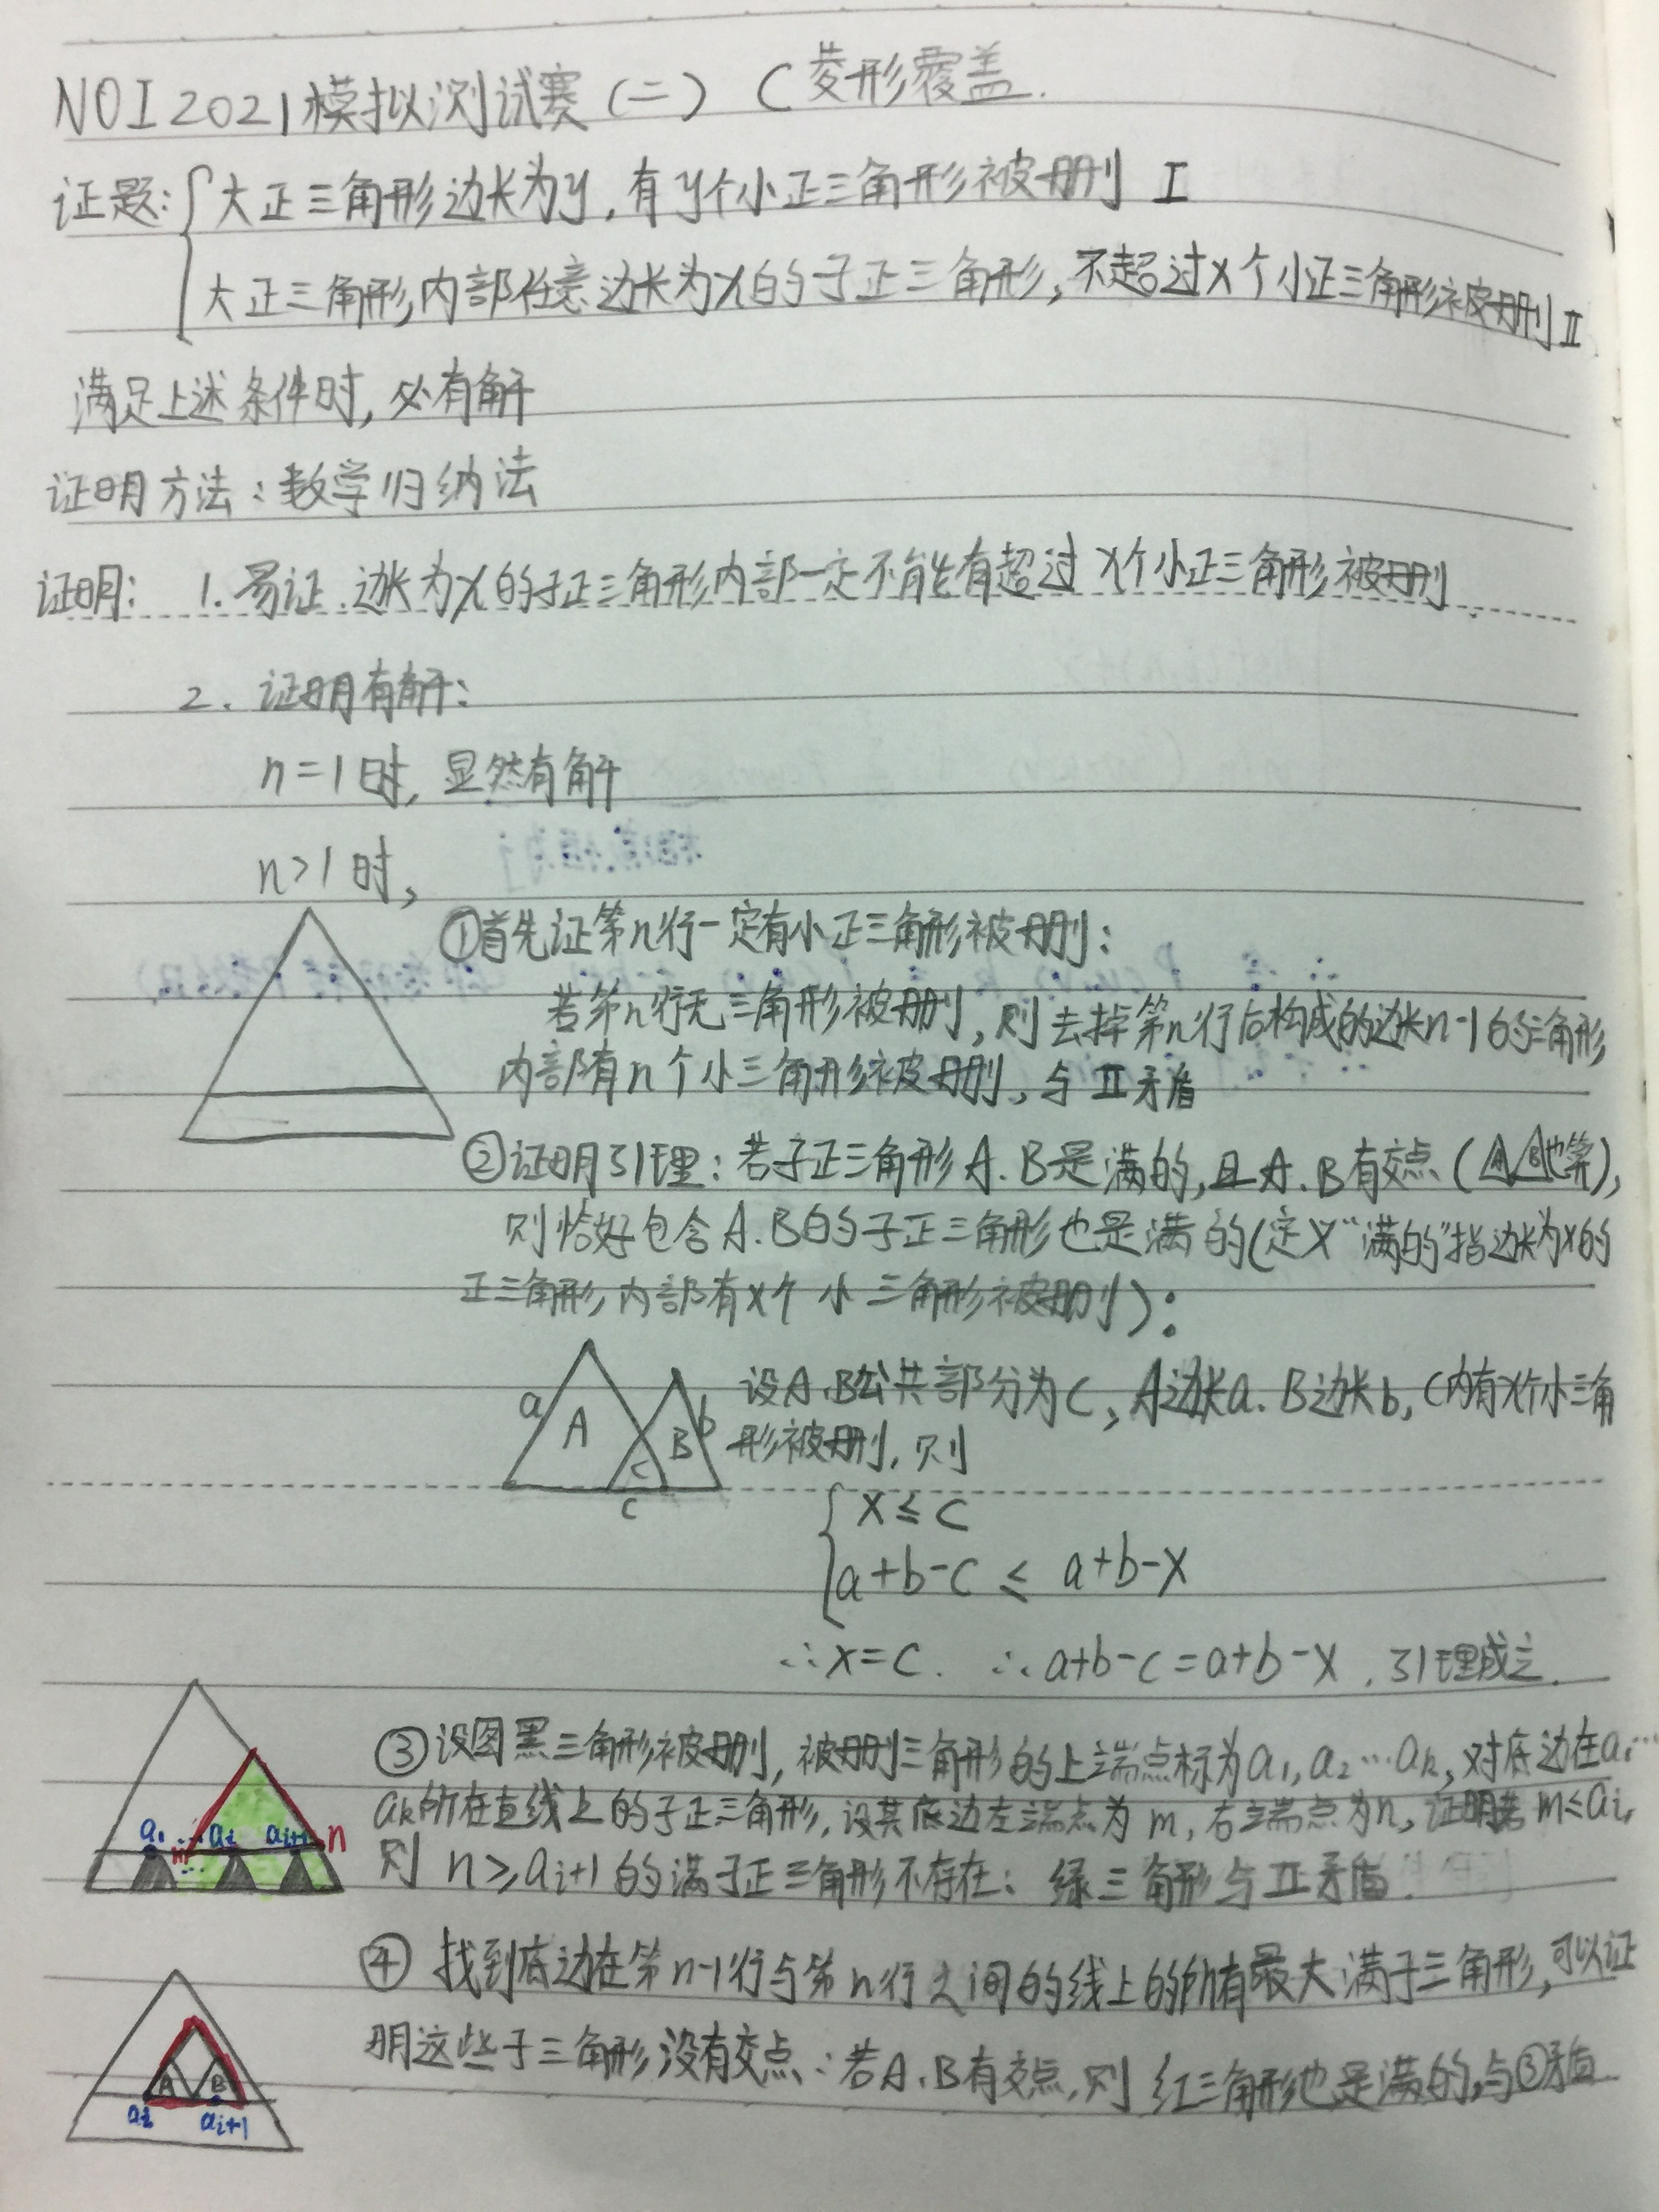 NOI2021模拟测试赛(二) C 菱形覆盖.
证题:{大正三角形边长为y,有y个小正三角形被册刂 I
大正三角形,内部任意边长为x的子正三角形,不超过x个小正三角形被册刂 II
满足上述条件时,必有解
证明方法:数学归纳法
证明: 1.易证.边长为x的子正三角形内部一定不能有超过x个小正三角形被删
2. 证明有解:
n=1时,显然有解
n>1时,
①首先证第n行一定有小正三角形被删:
若第n行无三角形被删,则去掉第n行后构成的边长n-1的三角形
内部有n个小三角形被删,与II矛盾
②证明引理:若子正三角形A.B是满的,且A.B有交点(A B也算),
则恰好包含A.B的子正三角形也是满的(定义"满的"指边长为x的
正三角形内部有x个小三角形被删):
a A C B b c
设A.B公共部分为C,A边长a.B边长b,C内有x个小三角
形被删,则
{x≤c
a+b-c≤a+b-x
∴x=c. ∴a+b-c=a+b-x,引理成立.
③设图黑三角形被删,被删三角形的上端点标为a₁,a₂…aₖ,对底边在a₁…
aₖ所在直线上的子正三角形,设其底边左端点为m,右端点为n,证明若m≤aᵢ,
则n≥aᵢ₊₁的满子正三角形不存在:绿三角形与II矛盾.
a₁ m aᵢ aᵢ₊₁ n
④找到底边在第n-1行与第n行之间的线上的所有最大满子三角形,可以证
明这些子三角形没有交点:若A.B有交点,则红三角形也是满的,与③矛盾
A B aᵢ aᵢ₊₁